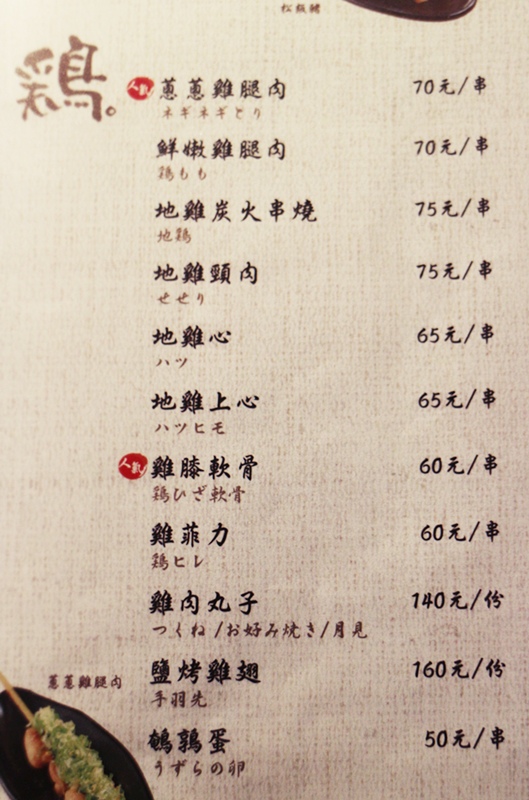 松阪豬
鶏。
人氣 蔥蔥雞腿肉 70元/串
ネギネギとり
鮮嫩雞腿肉 70元/串
鶏もも
地雞炭火串燒 75元/串
地鶏
地雞頸肉 75元/串
せせり
地雞心 65元/串
ハツ
地雞上心 65元/串
ハツヒモ
人氣 雞膝軟骨 60元/串
鶏ひざ軟骨
雞菲力 60元/串
鶏ヒレ
雞肉丸子 140元/份
つくね/お好み焼き/月見
鹽烤雞翅 160元/份
手羽先
蔥蔥雞腿肉
鵪鶉蛋 50元/串
うずらの卵